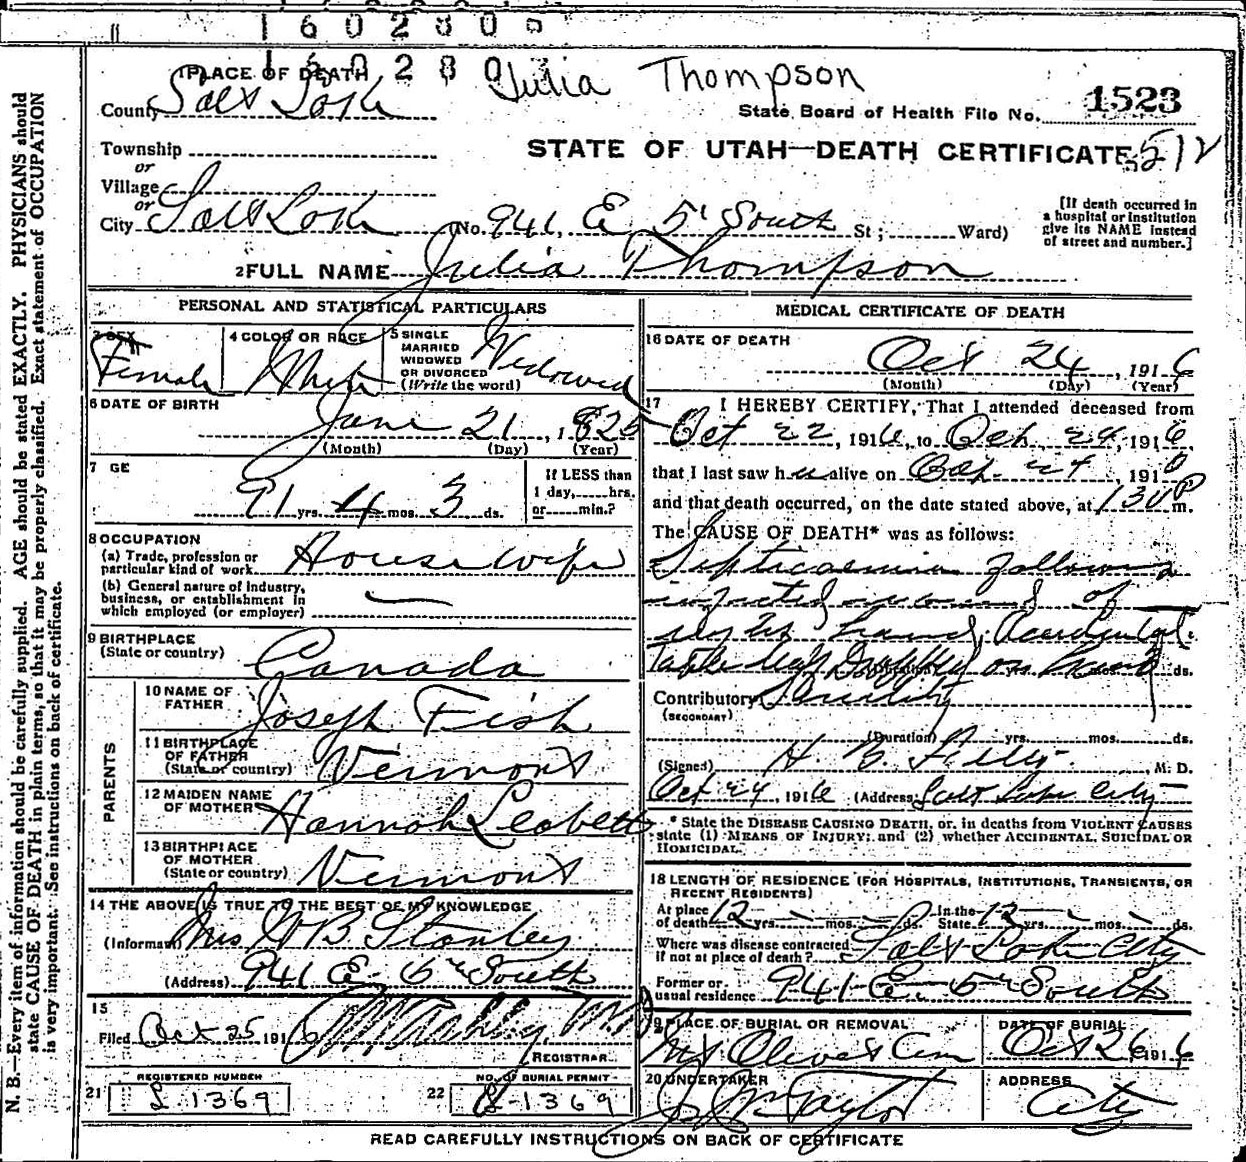 160280
160280
Julia Thompson
1 PLACE OF DEATH
County Salt Lake
State Board of Health File No. 1523
Township
STATE OF UTAH—DEATH CERTIFICATE 512
or
Village
or
City Salt Lake (No. 941 E 5th South St; Ward)
[If death occurred in
a hospital or institution
give its NAME instead
of street and number.]
2 FULL NAME Julia Thompson
PERSONAL AND STATISTICAL PARTICULARS
3 SEX
Female
4 COLOR OR RACE
White
5 SINGLE
MARRIED
WIDOWED
OR DIVORCED
(Write the word)
Widowed
6 DATE OF BIRTH
June 21, 1825
(Month) (Day) (Year)
7 GE
91 yrs. 4 mos. 3 ds.
If LESS than
1 day, hrs.
or min.?
8 OCCUPATION
(a) Trade, profession or
particular kind of work House wife
(b) General nature of industry,
business, or establishment in
which employed (or employer)
9 BIRTHPLACE
(State or country) Canada
PARENTS
10 NAME OF
FATHER Joseph Fish
11 BIRTHPLACE
OF FATHER
(State or country) Vermont
12 MAIDEN NAME
OF MOTHER Hannah Leabett
13 BIRTHPLACE
OF MOTHER
(State or country) Vermont
14 THE ABOVE IS TRUE TO THE BEST OF MY KNOWLEDGE
(Informant) Mrs W B Stanley
(Address) 941 E 5th South
15
Filed Oct 25 1916 M.D.
REGISTRAR
REGISTERED NUMBER
21 L 1369
NO. OF BURIAL PERMIT
22 1369
MEDICAL CERTIFICATE OF DEATH
16 DATE OF DEATH
Oct 24, 1916
(Month) (Day) (Year)
17 I HEREBY CERTIFY, That I attended deceased from
Oct 22, 1916, to Oct 24, 1916,
that I last saw her alive on Oct 24, 1916
and that death occurred, on the date stated above, at 130 P m.
The CAUSE OF DEATH* was as follows:
Septicaemia following
infected wound of
right hand, Accidental.
Table leaf Dropped on hand
(Duration) yrs. mos. ds.
Contributory Senility
(SECONDARY)
(Duration) yrs. mos. ds.
(Signed) H. B. , M. D.
Oct 24, 1916 (Address) Salt Lake City
* State the DISEASE CAUSING DEATH, or, in deaths from VIOLENT CAUSES
state (1) MEANS OF INJURY; and (2) whether ACCIDENTAL, SUICIDAL OR
HOMICIDAL.
18 LENGTH OF RESIDENCE (FOR HOSPITALS, INSTITUTIONS, TRANSIENTS, OR
RECENT RESIDENTS)
At place
of death 12 yrs. mos. ds. In the
State 12 yrs. mos. ds.
Where was disease contracted
if not at place of death? Salt Lake City
Former or
usual residence 941 E. 5th South
19 PLACE OF BURIAL OR REMOVAL
Mt Olivet Cem
DATE OF BURIAL
Oct 26, 1916
20 UNDERTAKER
Taylor
ADDRESS
City
READ CAREFULLY INSTRUCTIONS ON BACK OF CERTIFICATE
N. B.—Every item of information should be carefully supplied. AGE should be stated EXACTLY. PHYSICIANS should
state CAUSE OF DEATH in plain terms, so that it may be properly classified. Exact statement of OCCUPATION
is very important. See instructions on back of certificate.